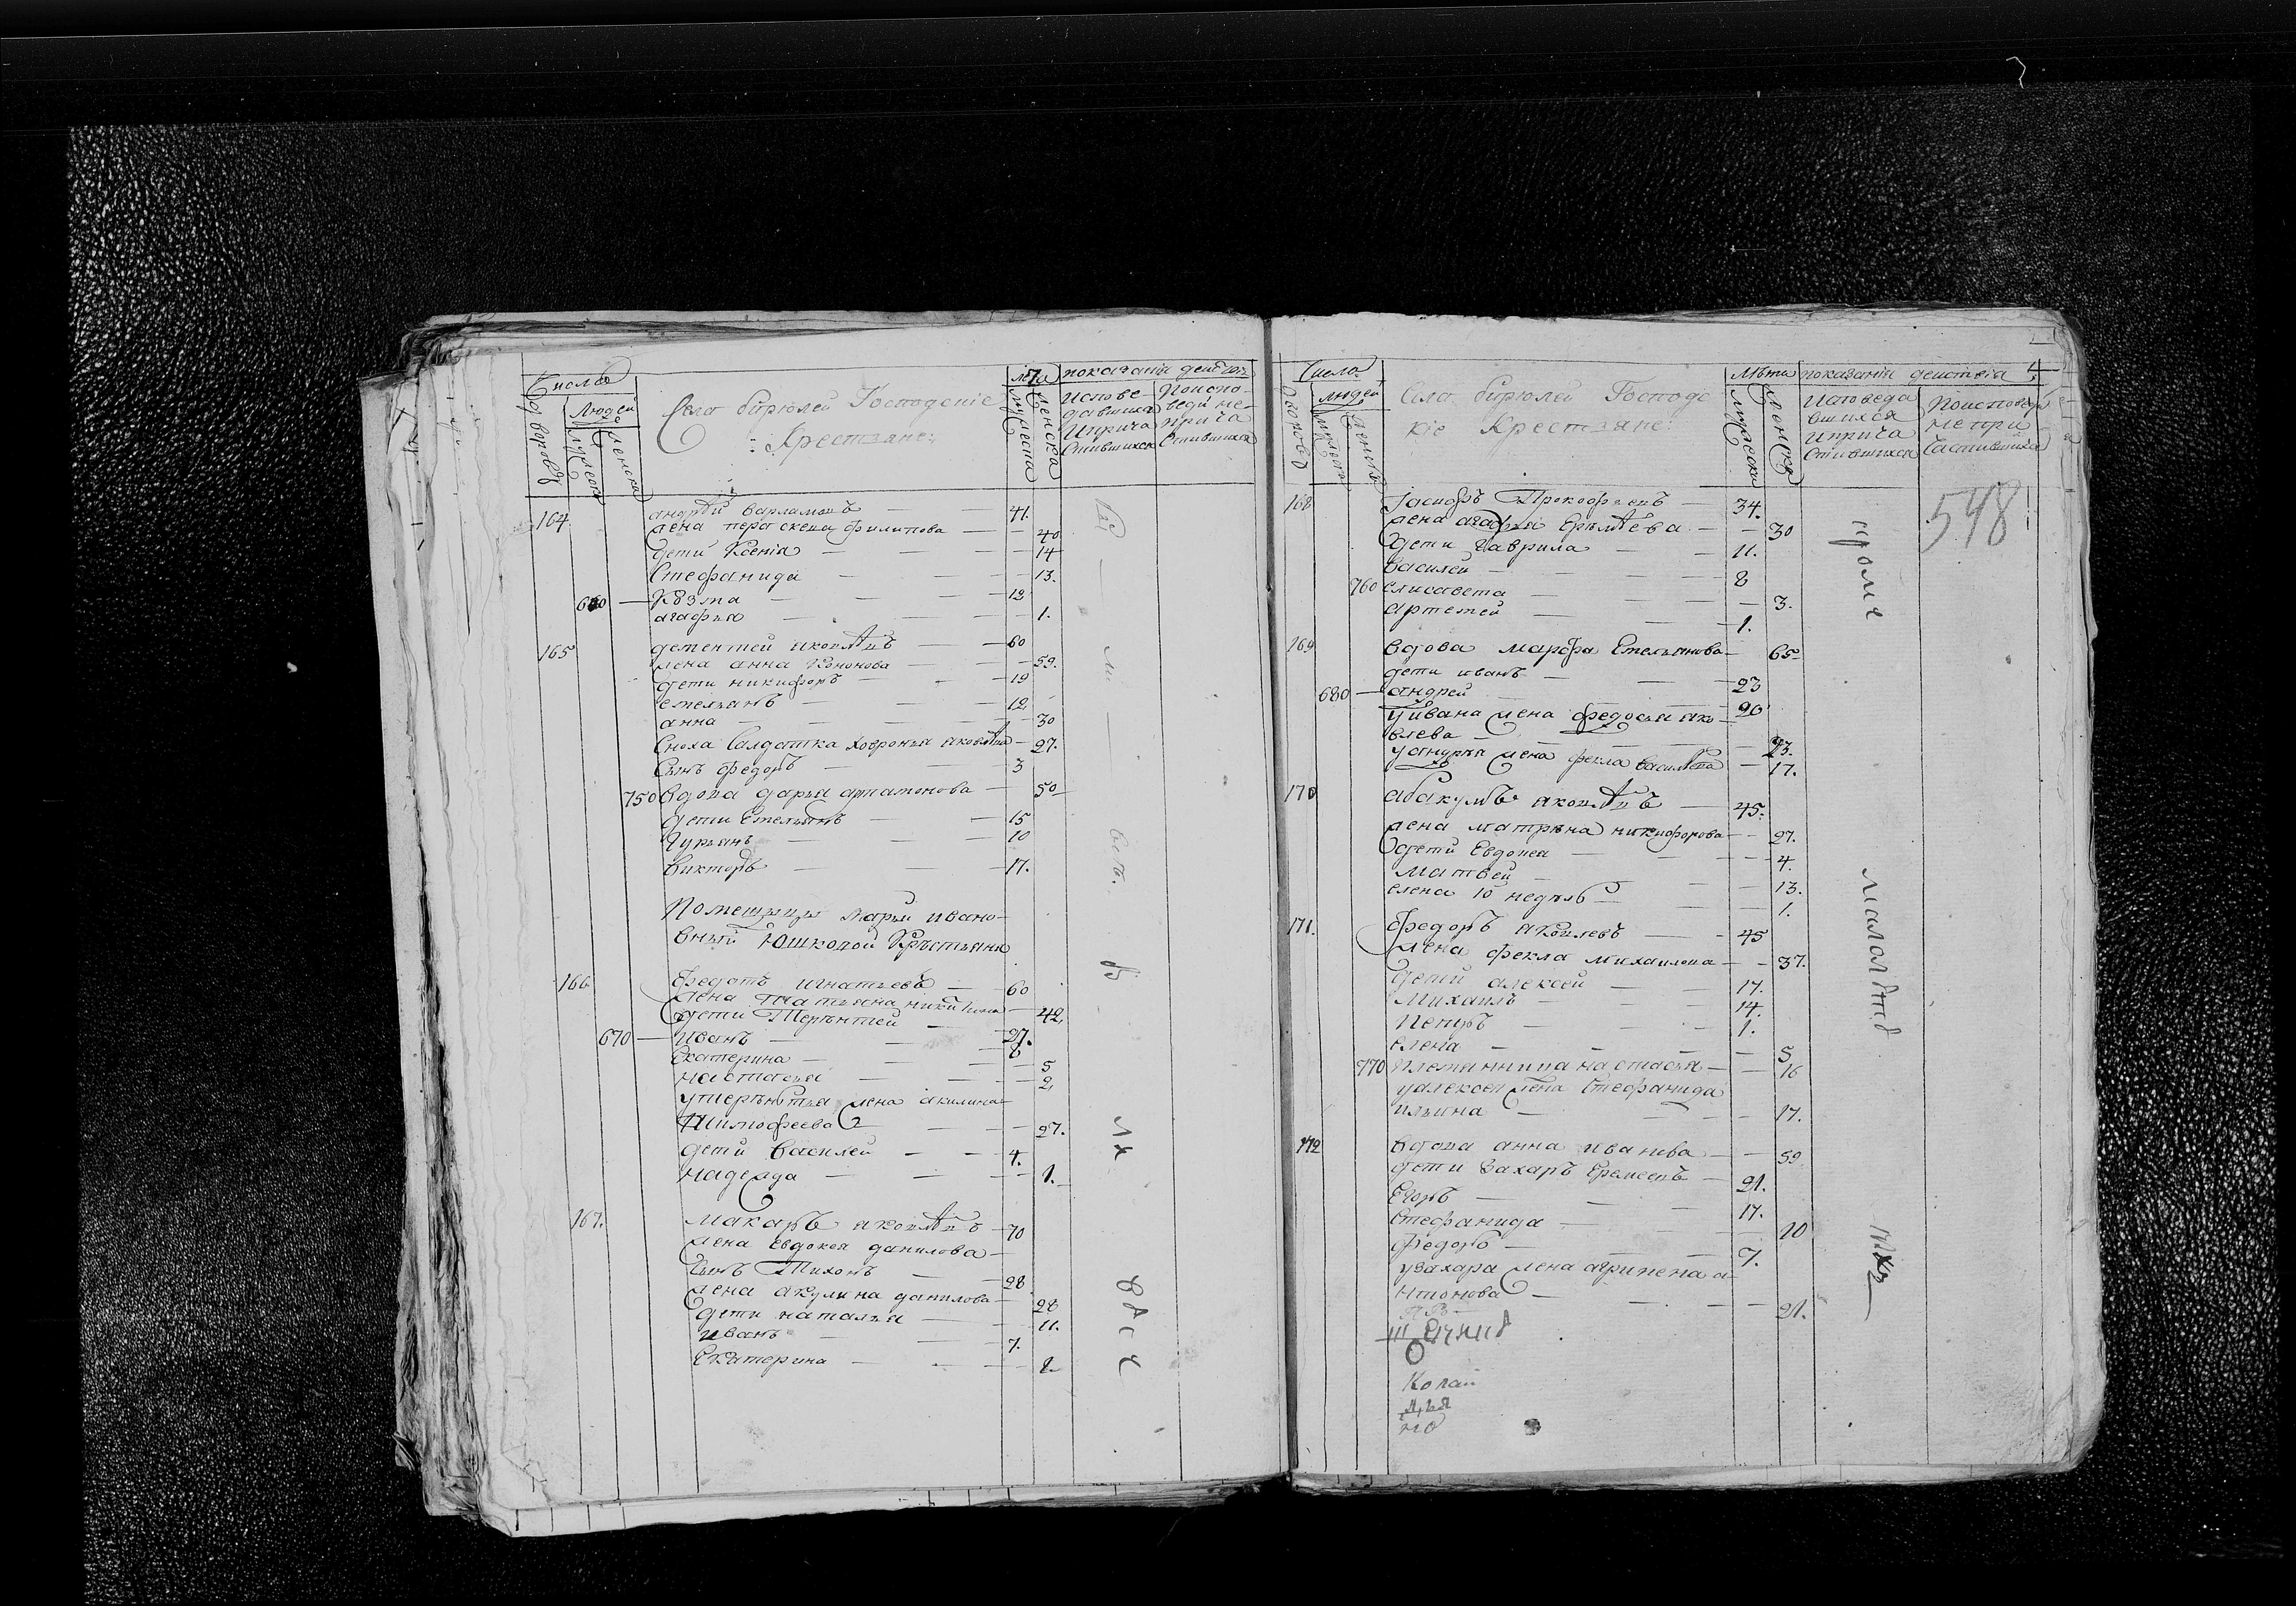 Число
дворовъ
Людей
мужеска
женска
Села бирюлей Господскіе
Крестьяне:
лета
мужеска
женска
показаніи действъ
Испове
давшихся
Иприча
стившихся
Поиспо
веди не
прича
стившихся
164 андрей варламовъ — 41.
жена параскева филипова — 40
дети Ксенія — 14
Стефанида — 13.
660 — Козма — 12
агафья — 1.
165 дементей яковлевъ — 60
жена анна Кононова — 59.
дети никифоръ — 19
емельянъ — 12
анна — 30
Сноха Салдатка ховронья яковлева — 27.
Сынъ федоръ — 3
750 вдова дарья артамонова — 50
дети Емельянъ — 15
Гурьянъ — 10
викторъ — 17.
Помещицы марьи ивано-
вны Юшковой Крестьяне
166 федотъ игнатьевъ — 60
жена татьяна никитина — 42
дети Терентей — 27.
670 — Иванъ — 8
Екатерина — 5
настасья — 2
утерентья жена акилина
Тимофеева — 27.
дети василей — 4.
надежда — 1.
167. макаръ яковлевъ — 70
жена евдокея данилова —
Сынъ Тихонъ — 28
жена акулина данилова — 28
дети наталья — 11.
иванъ — 7.
Екатерина — 2
Числа
дворовъ
людей
Села бирюлей Господс
кіе Крестьяне:
Лѣта
мужеска
женска
показаніи действія
Исповеда
вшихся
иприча
стившихся
Поисповеди
непри
частившихся
548
168 Иосифъ Прокофьевъ — 34.
жена агафья Ермѣева — 30
дети гаврила — 11.
василей — 8
760 елисавета — 3.
артемей — 1.
169 вдова марфа Емельянова — 65
дети иванъ — 23
680 — андрей — 20
уивана жена федосья яко
влева — 23.
уандрея жена фекла васильева — 17.
170 абакумъ яковлевъ — 45.
жена матрена никифорова — 27.
дети Евдокея — 4.
матвей — 13.
елена 10 недель — 1.
171. федоръ яковлевъ — 45
жена фекла михаилова — 37.
дети алексей — 17.
Михаилъ — 14.
Петръ — 1.
елена — 5
770 племянница настасья — 16
уалексея жена Стефанида
ильина — 17.
172 вдова анна иванова — 59
дети Захаръ Еремеевъ — 21.
Егоръ — 17.
Стефанида — 10
Федоръ — 7.
узахара жена агрипена а
нтонова — 21.
кроме
малолѣт